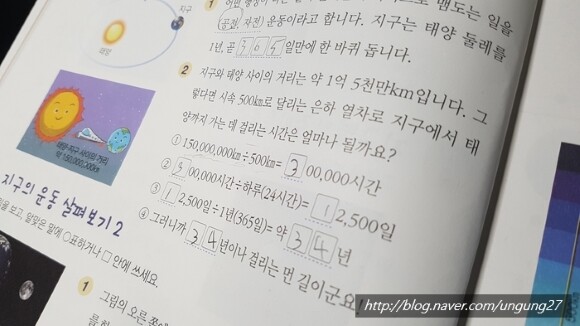 어떤 행성이
으로 맴도는 일을
(공전, 자전) 운동이라고 합니다. 지구는 태양 둘레를
1년, 곧 3 6 5 일만에 한 바퀴 돕니다.
지구
태양
2 지구와 태양 사이의 거리는 약 1억 5천만km입니다. 그
렇다면 시속 500km로 달리는 은하 열차로 지구에서 태
양까지 가는 데 걸리는 시간은 얼마나 될까요?
① 150,000,000km÷500km= 3 00,000시간
② 3 00,000시간÷하루(24시간)= 1 2,500일
③ 1 2,500일÷1년(365일)= 약 3 4 년
④ 그러니까 3 4 년이나 걸리는 먼 길이군요!
태양-지구 사이의 거리
약 150,000,000km
지구의 운동 살펴보기 2
을 보고, 알맞은 말에 ○표하거나 □ 안에 쓰세요.
1 그림의 오른 쪽
http://blog.naver.com/ungung27